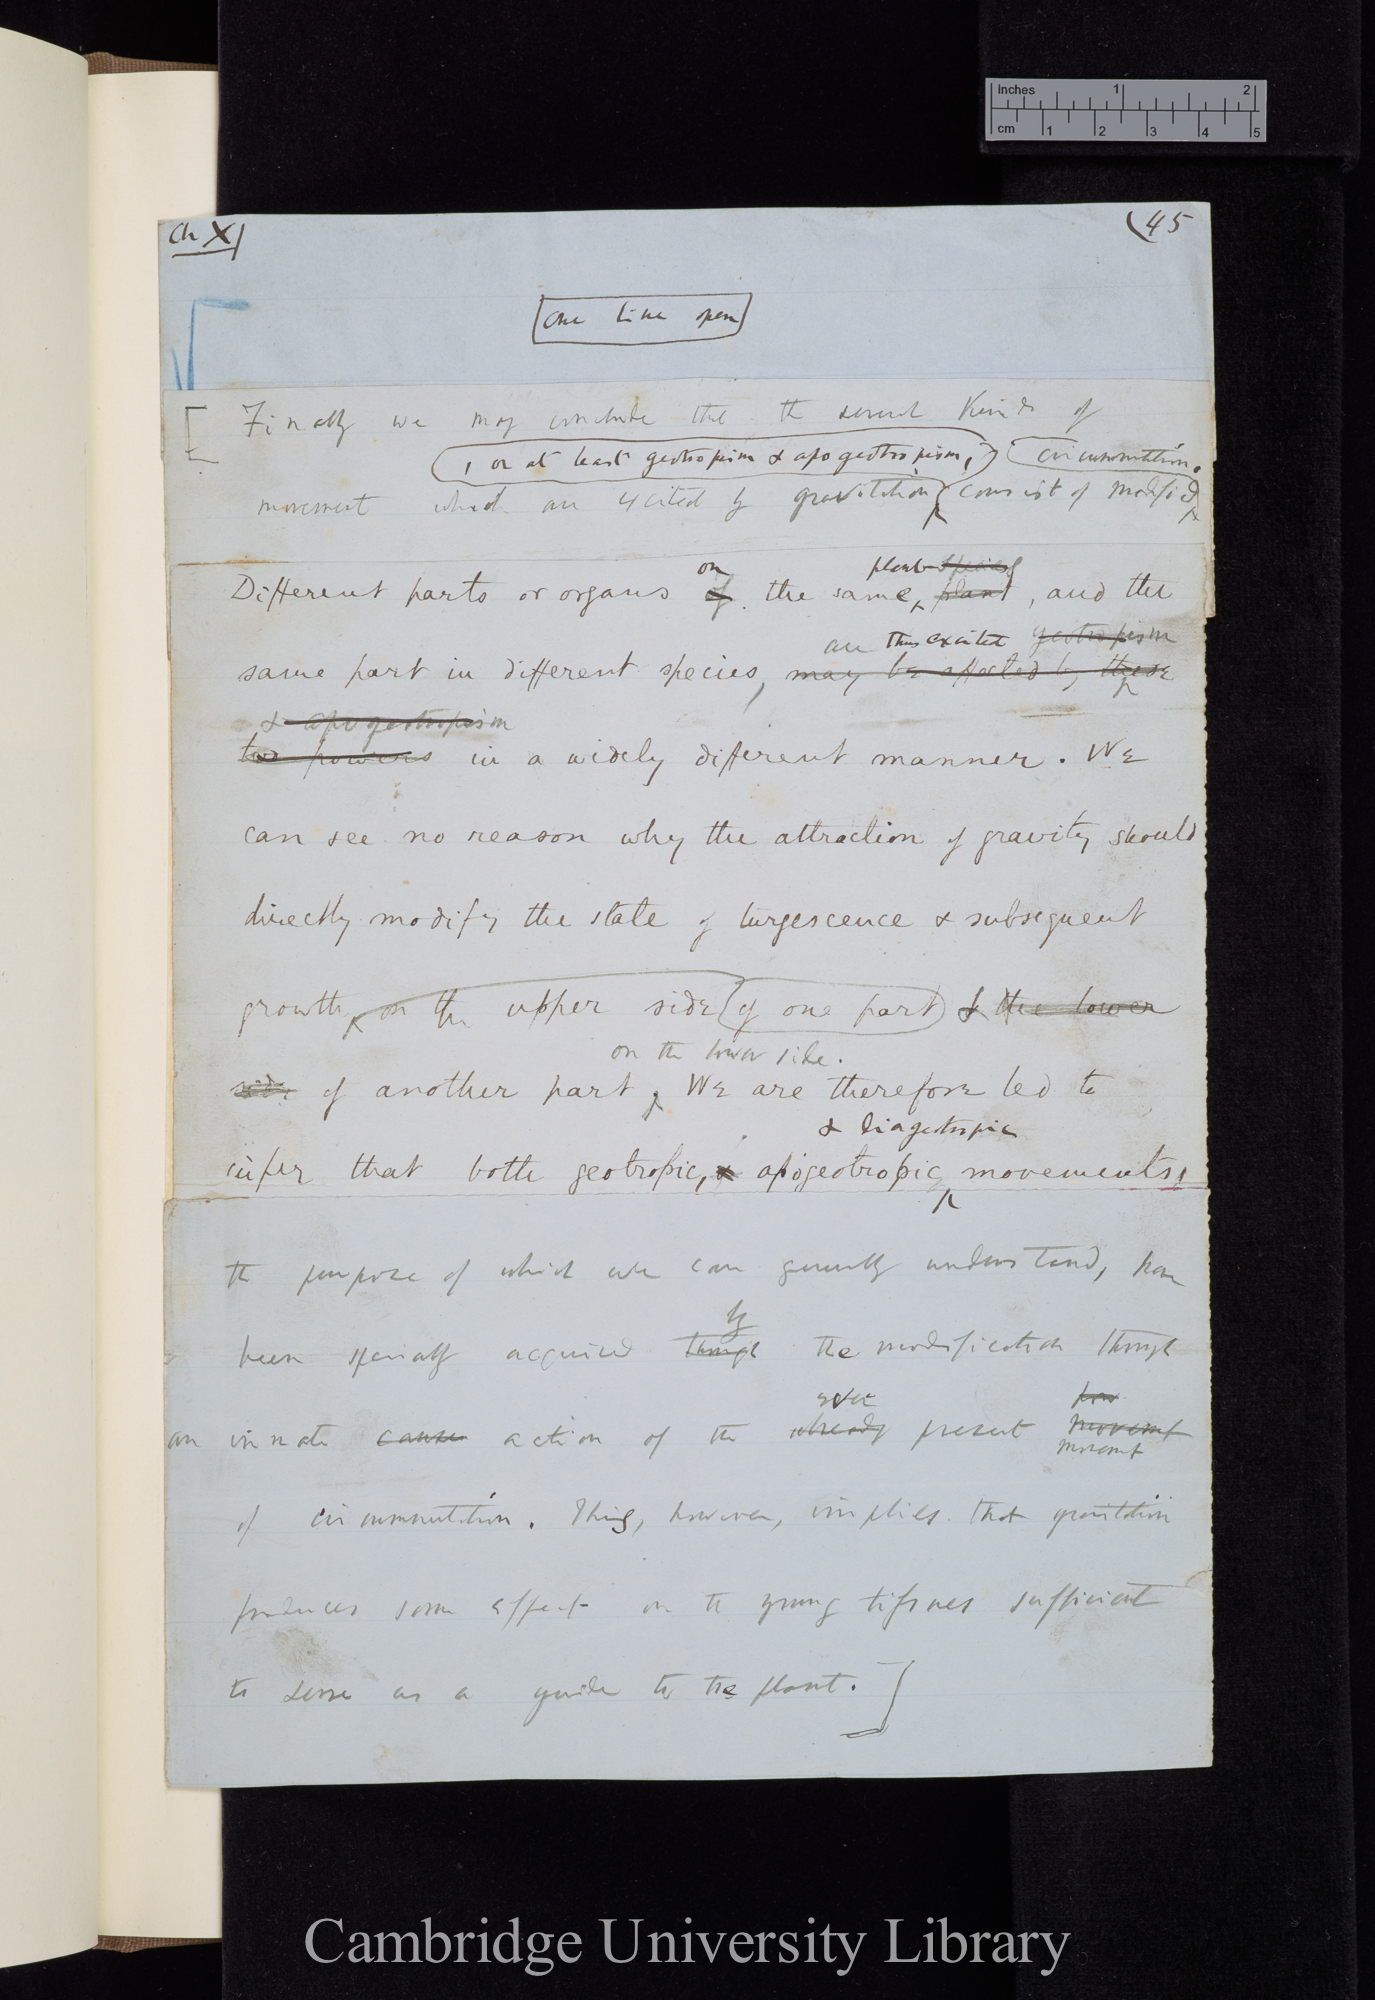 Inches 1 2
cm 1 2 3 4 5
Ch X
(45
one line open
[Finally we may conclude that the several kinds of
, or at least geotropism & apogeotropism, circumnutation.
movement which are excited by gravitation consist of modified
on plant species
Different parts or organs of the same, plant, and the
are thus excited geotropism
same part in different species, may be affected by these
& apogeotropism
two powers in a widely different manner. We
can see no reason why the attraction of gravity should
directly modify the state of turgescence & subsequent
growth, on the upper side of one part & the lower
on the lower side.
side of another part, We are therefore led to
& diageotropic
infer that both geotropic, & apogeotropic movements,
the purpose of which we can generally understand, have
by
been specially acquired through the modification through
ever
an innate cause action of the already present movement
movement
of circumnutation. This, however, implies that gravitation
produces some effect on the young tissues sufficient
to serve as a guide to the plant.]
Cambridge University Library